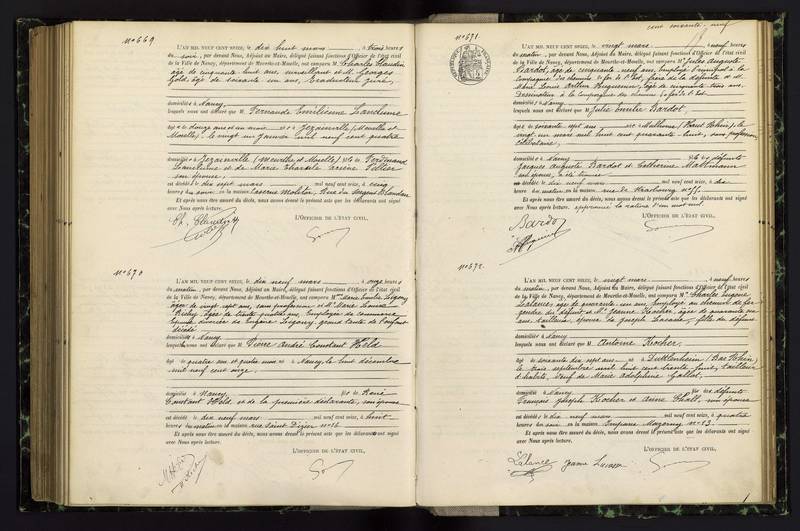 N° 669
L'AN MIL NEUF CENT SEIZE, le dix huit mars, à trois heures
du soir, par devant Nous, Adjoint au Maire, délégué faisant fonctions d'Officier de l'état civil
de la Ville de Nancy, département de Meurthe-et-Moselle, ont comparu M. Charles
âgé de cinquante huit ans, surveillant et M. Georges
âgé de soixante un ans,
domiciliés à Nancy
lesquels nous ont déclaré que M. Fernande Emilienne Lanclume
âgée de douze ans et un mois née à Jezainville (Meurthe et
Moselle), le vingt un janvier mil neuf cent quatre
domiciliée à Jezainville (Meurthe et Moselle) fille de Ferdinand
Lanclume et de Marie
son épouse
est décédée le dix sept mars mil neuf cent seize, à cinq
heures du soir, en la maison caserne Molitor, Rue du Sergent Blandan
Et après nous être assuré du décès, nous avons dressé le présent acte que les déclarants ont signé
avec Nous après lecture.
L'OFFICIER DE L'ÉTAT CIVIL,
N° 670
L'AN MIL NEUF CENT SEIZE, le dix neuf mars, à onze heures
du matin, par devant Nous, Adjoint au Maire, délégué faisant fonctions d'Officier de l'état civil
de la Ville de Nancy, département de Meurthe-et-Moselle, ont comparu Mme Marie
âgée de vingt sept ans, sans profession et Me Marie Louise
âgée de trente quatre ans, employée de commerce
épouse divorcée de Eugène grand'tante de l'enfant
décédé
domiciliés à Nancy
lesquels nous ont déclaré que M. Pierre André Constant Held
âgé de quatre ans et quatre mois né à Nancy, le huit décembre
mil neuf cent onze
domicilié à Nancy, fils de René
Constant Held, et de la première déclarante, son épouse
est décédé le dix neuf mars mil neuf cent seize, à huit
heures du matin en la maison rue Saint Dizier n° 16
Et après nous être assuré du décès, nous avons dressé le présent acte que les déclarants ont signé
avec Nous après lecture.
L'OFFICIER DE L'ÉTAT CIVIL,
cent soixante neuf
N° 671.
L'AN MIL NEUF CENT SEIZE, le vingt mars, à neuf heures
du matin, par devant Nous, Adjoint au Maire, délégué faisant fonctions d'Officier de l'état civil
de la Ville de Nancy, département de Meurthe-et-Moselle, ont comparu M. Jules Auguste
Bardot, âgé de cinquante neuf ans, employé principal à la
Compagnie des chemins de fer de l'Est, frère de la défunte et M.
Marie Louis Arthur Huguenin, âgé de cinquante trois ans,
Dessinateur à la Compagnie des chemins de fer de l'Est
domiciliés à Nancy
lesquels nous ont déclaré que M. Julie Emilie Bardot
âgée de soixante sept ans née à Mulhouse (Haut Rhin), le
vingt un mars mil huit cent quarante huit, sans profession
célibataire,
domiciliée à Nancy fille de défunts
Jacques Auguste Bardot et Catherine
son épouse,
est décédée le dix neuf mars mil neuf cent seize, à dix
heures du matin, en la maison rue de Strasbourg n° 55
Et après nous être assuré du décès, nous avons dressé le présent acte que les déclarants ont signé
avec Nous après lecture. approuvé la rature d'un mot nul.
L'OFFICIER DE L'ÉTAT CIVIL,
Bardot
N° 672.
L'AN MIL NEUF CENT SEIZE, le vingt mars, à neuf heures
du matin, par devant Nous, Adjoint au Maire, délégué faisant fonctions d'Officier de l'état civil
de la Ville de Nancy, département de Meurthe-et-Moselle, ont comparu M. Charles Eugène
Lalance âgé de quarante un ans, employé au chemin de fer
gendre du défunt et Me Jeanne Kocher, âgée de quarante
ans tailleuse, épouse de Joseph fille du défunt
domiciliés à Nancy
lesquels nous ont déclaré que M. Antoine Kocher,
âgé de soixante dix sept ans né à Duttlenheim (Bas Rhin),
le trois septembre mil huit cent trente huit, tailleur
d'habits, veuf de Marie
domicilié à Nancy fils des défunts
François Joseph Kocher et Anne son épouse
est décédé le dix neuf mars mil neuf cent seize, à quatre
heures du soir en la maison Impasse n° 13
Et après nous être assuré du décès, nous avons dressé le présent acte que les déclarants ont signé
avec Nous après lecture.
L'OFFICIER DE L'ÉTAT CIVIL,
Lalance Jeanne